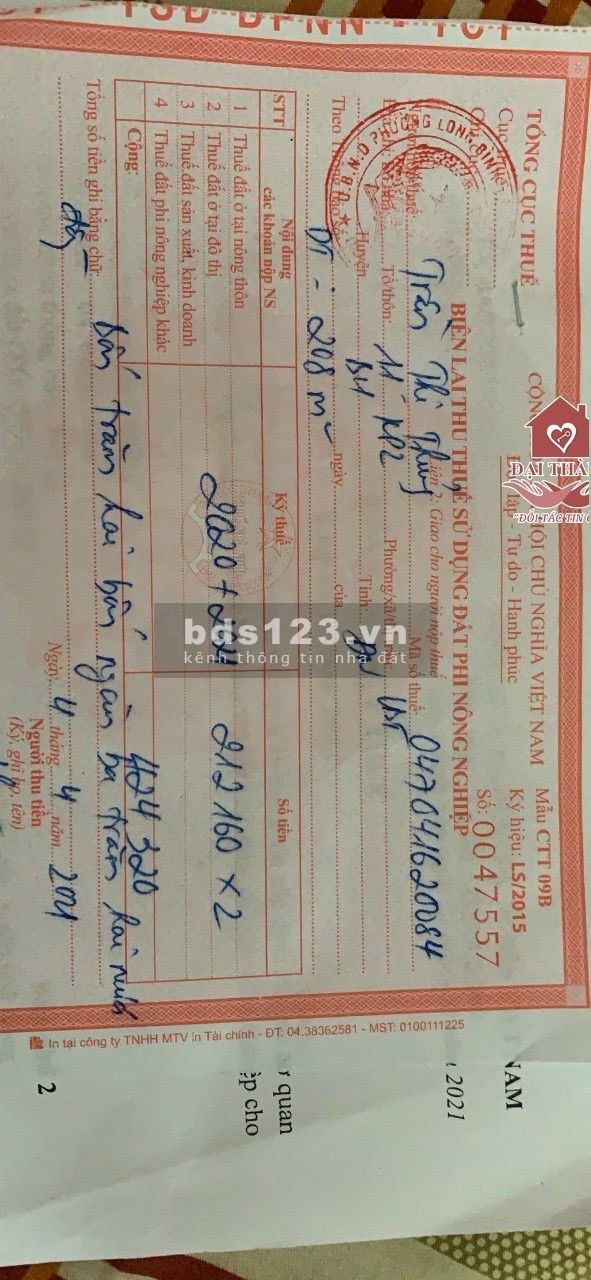 TSD DPNN - TCT
TỔNG CỤC THUẾ
CỘNG HỘI CHỦ NGHĨA VIỆT NAM
Mẫu CTT 09B
Cục
lập Tự do - Hạnh phúc
Ký hiệu: LS/2015
Số: 0047557
BIÊN LAI THU THUẾ SỬ DỤNG ĐẤT PHI NÔNG NGHIỆP
Liên 2: Giao cho người nộp thuế
Trần Thị Mã số thuế: 047041620084
Tổ/thôn: 11 KP2 Phường/xã
Huyện BH Tỉnh:
Theo ngày của
DT: 208 m²
STT
Nội dung các khoản nộp NS
Kỳ thuế
Số tiền
1 Thuế đất ở tại nông thôn
2 Thuế đất ở tại đô thị 2020 + 2021 212 160 x 2
3 Thuế đất sản xuất, kinh doanh
4 Thuế đất phi nông nghiệp khác
Cộng: 424 320
Tổng số tiền ghi bằng chữ bốn trăm hai bốn ngàn ba trăm hai mươi
đồng
Ngày 4 tháng 4 năm 2021
Người thu tiền
(Ký, ghi họ, tên)
U.B.N.D PHƯỜNG LONG BÌNH
In tại công ty TNHH MTV in Tài chính - ĐT: 04.38362581 - MST: 0100111225
NAM
2021
quan
ệp cho
2
bds123.vn
kênh thông tin nhà đất
ĐẠI THÀ
"ĐỐI TÁC TIN C